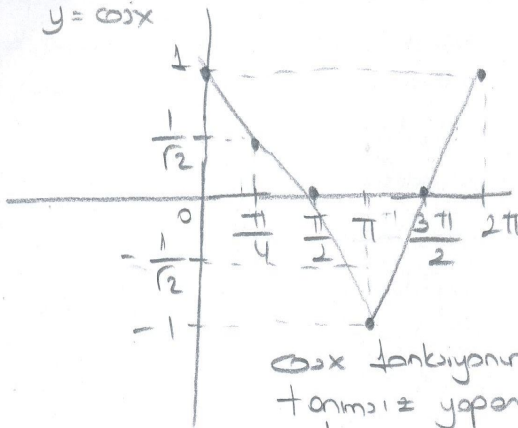 y = cosx
1
1/√2
0
π/4
π/2
π
3π/2
2π
-1/√2
-1
cosx fonksiyonun
tanımsız yapan